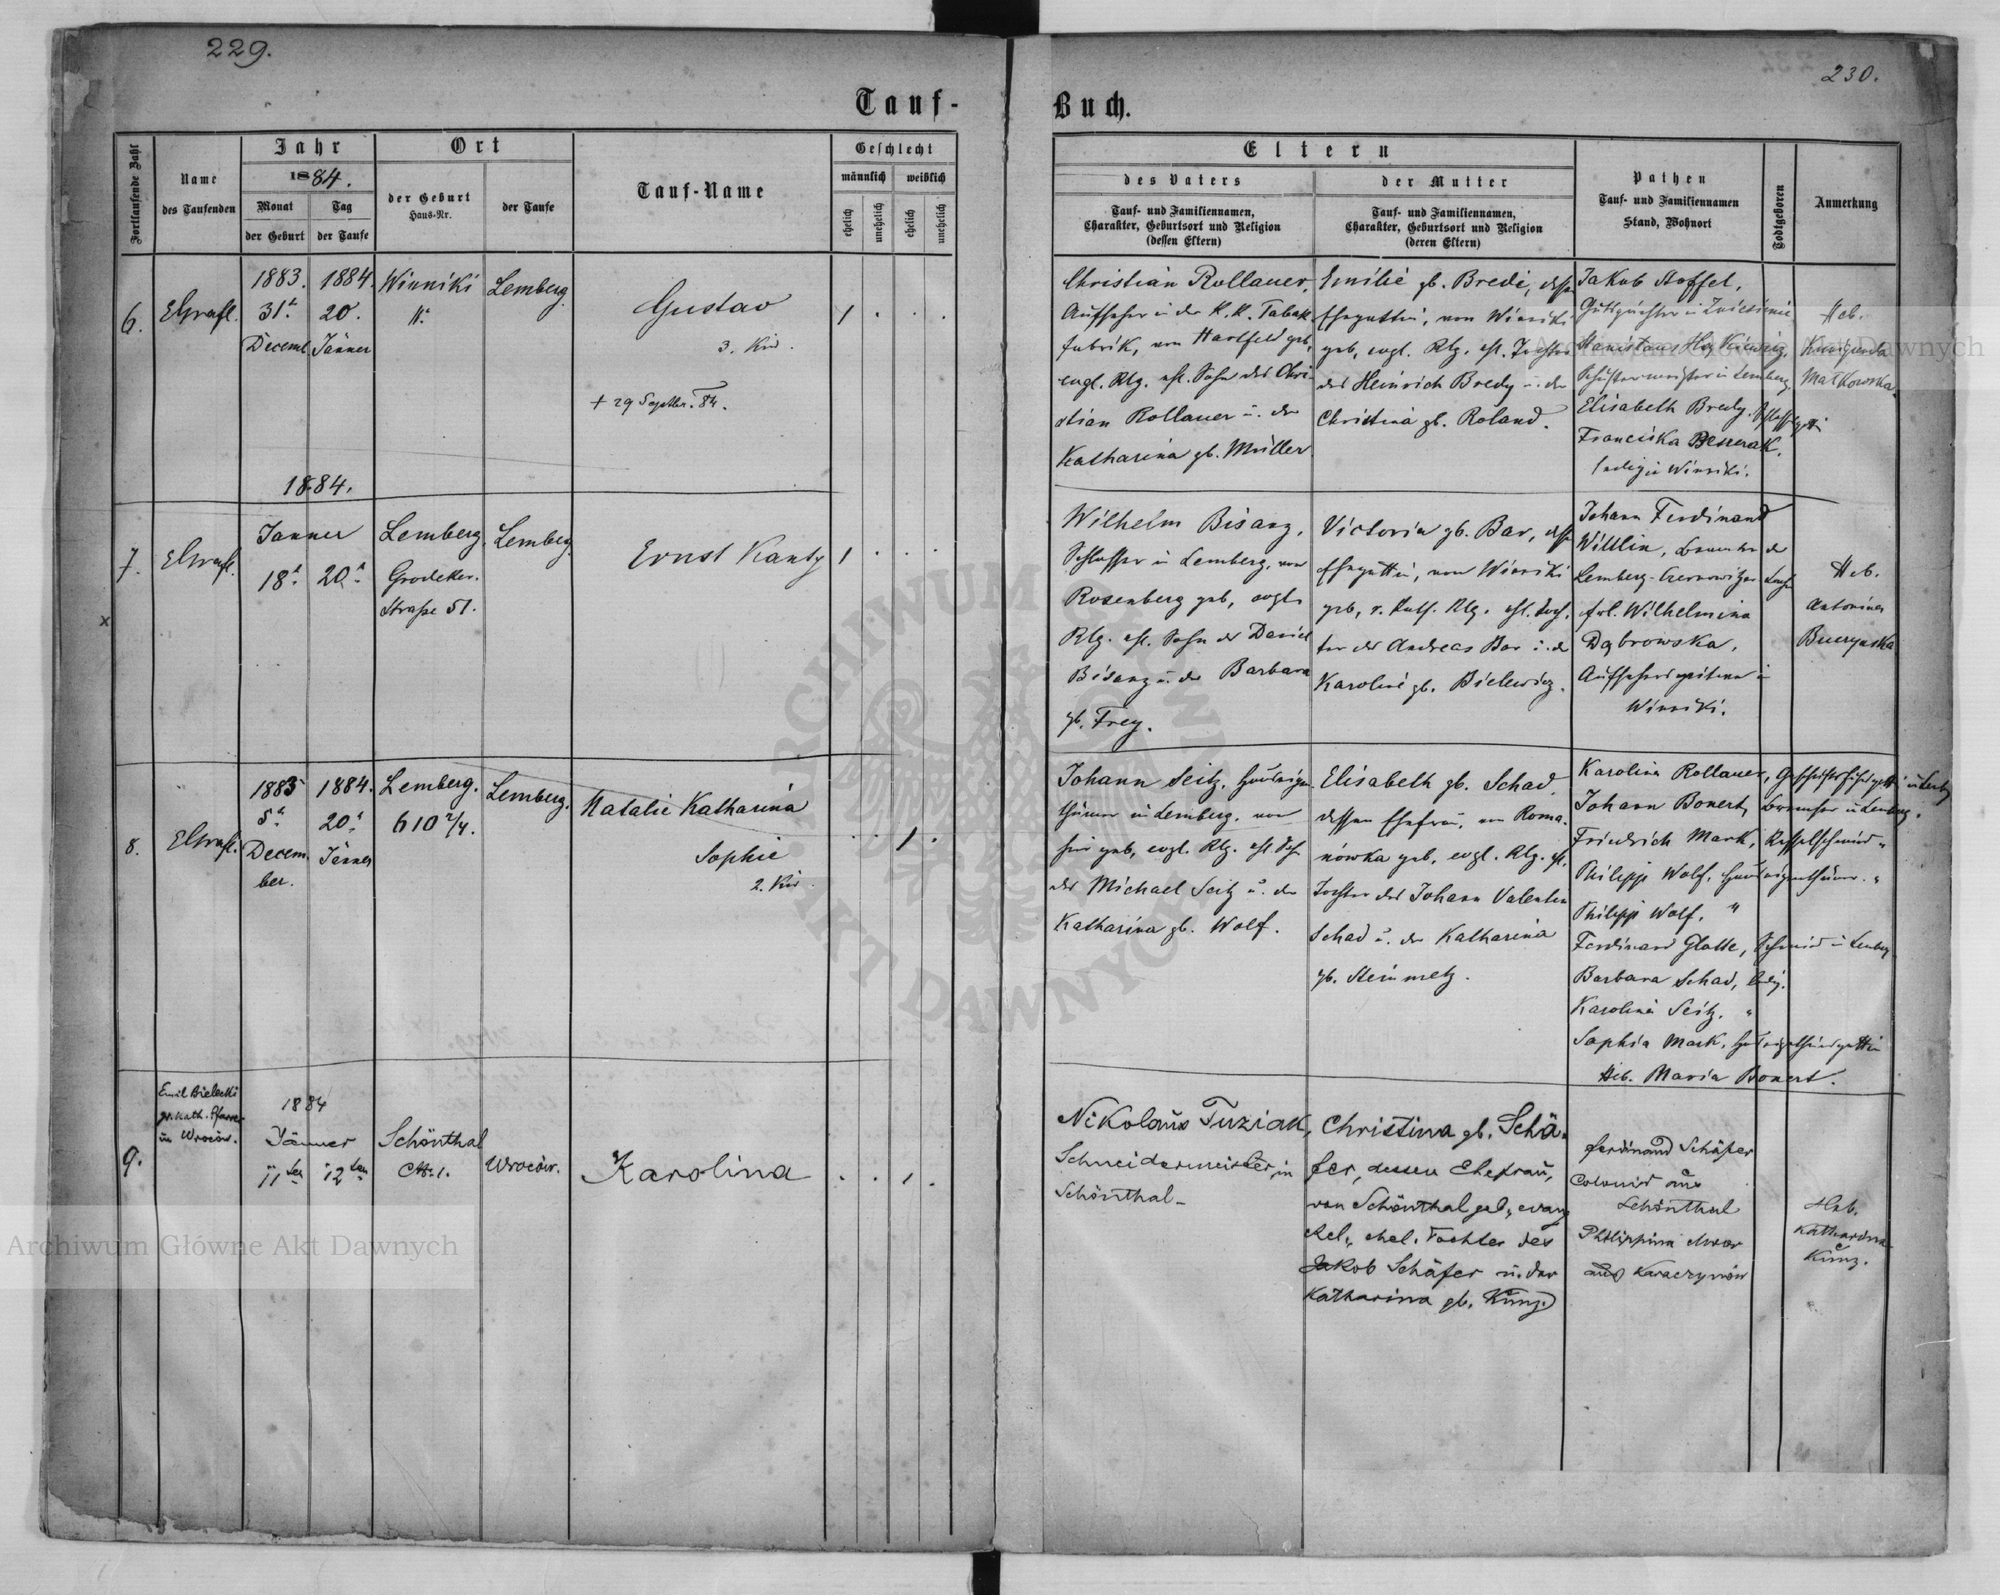 229.
230.
Tauf-
Buch.
Fortlaufende Zahl
Name
des Taufenden
Jahr
1884.
Monat
der Geburt
Tag
der Taufe
Ort
der Geburt
Haus-Nr.
der Taufe
Tauf-Name
Geschlecht
männlich
weiblich
ehelich
unehelich
ehelich
unehelich
Eltern
des Vaters
Tauf- und Familiennamen,
Charakter, Geburtsort und Religion
(dessen Eltern)
der Mutter
Tauf- und Familiennamen,
Charakter, Geburtsort und Religion
(deren Eltern)
Pathen
Tauf- und Familiennamen
Stand, Wohnort
Todtgeboren
Anmerkung
6.
1883.
31.
Decemb.
1884.
20.
Jänner
Winniki
Lemberg.
Gustav
3. Kind.
+ 29 Septbr. 84.
1
Christian Rollauer,
Aufseher in der K. K. Tabak
fabrik, von Hartfeld geb,
evgl. Rlg. ehl. Sohn des Chri-
stian Rollauer u. der
Katharina gb. Müller
Emilie gb. Bredi, dess
Ehegattin, von Winniki
geb, evgl. Rlg. ehl. Tochter
des Heinrich Bredy u. der
Christina gb. Roland.
Jakob Stoffel,
Stanislaus
Schustermeister in Lemberg,
Elisabeth Bredy
Franciska
ledig in Winniki.
Heb.
Kunigunda
Małkowska
1884.
7.
Janner
18t.
20t.
Lemberg.
Grodeker.
Straße 51.
Lemberg.
Ernst Kanty
1
Wilhelm Bisanz,
Schlosser in Lemberg, von
Rosenberg geb, evgl.
Rlg. ehl. Sohn des Daniel
Bisanz u. der Barbara
gb. Frey.
Victoria gb. Bar, dess
Ehegattin, von Winniki
geb, r. kath. Rlg. ehl. Toch-
ter des Andreas Bar u. der
Karoline gb. Bielewicz.
Johann Ferdinand
Wittlin, Beamter der
Lemberg-Czernowitzer
frl. Wilhelmina
Dąbrowska,
Winniki.
Heb.
Antonina
8.
1883
5t.
Decem-
ber.
1884.
20t.
Jänner
Lemberg.
610 2/4.
Lemberg.
Natalie Katharina
Sophie
2. Kind.
1
Johann Seitz, Hauseigen-
thümer in Lemberg, von
hier geb, evgl. Rlg. ehl. Sohn
des Michael Seitz u. der
Katharina gb. Wolf.
Elisabeth gb. Schad,
dessen Ehefrau, von Roma-
nówka geb, evgl. Rlg. ehl.
Tochter des Johann Valentin
Schad u. der Katharina
gb. Steinmetz.
Karolina Rollauer,
Johann Bonert, Beamter in Lemberg.
Friedrich Mark, Kesselschmied "
Philipp Wolf, Hauseigenthümer. "
Philipp Wolf, "
Ferdinand Glatte, Schmied in Lemberg
Barbara Schad, ledig.
Karolina Seitz, "
Sophia Mark,
Heb. Maria Bonert.
9.
Emil Bielecki
gr. kath. Pfarrer
in Wroców.
1884
Jänner
11ten
12ten
Schönthal
CN. 1.
Wroców.
Karolina
1
Nikolaus Tuziak,
Schneidermeister in
Schönthal-
Christina gb. Schä-
fer, dessen Ehefrau,
von Schönthal geb, evang
Rel, ehel. Tochter des
Jakob Schäfer u. der
Katharina gb. Kunz.
Ferdinand Schäfer
Colonist aus
Schönthal
Philippina
aus Karaczynów
Heb.
Katharina
Kunz.
x
ARCHIWUM GŁÓWNE AKT DAWNYCH
Archiwum Główne Akt Dawnych
Archiwum Główne Akt Dawnych